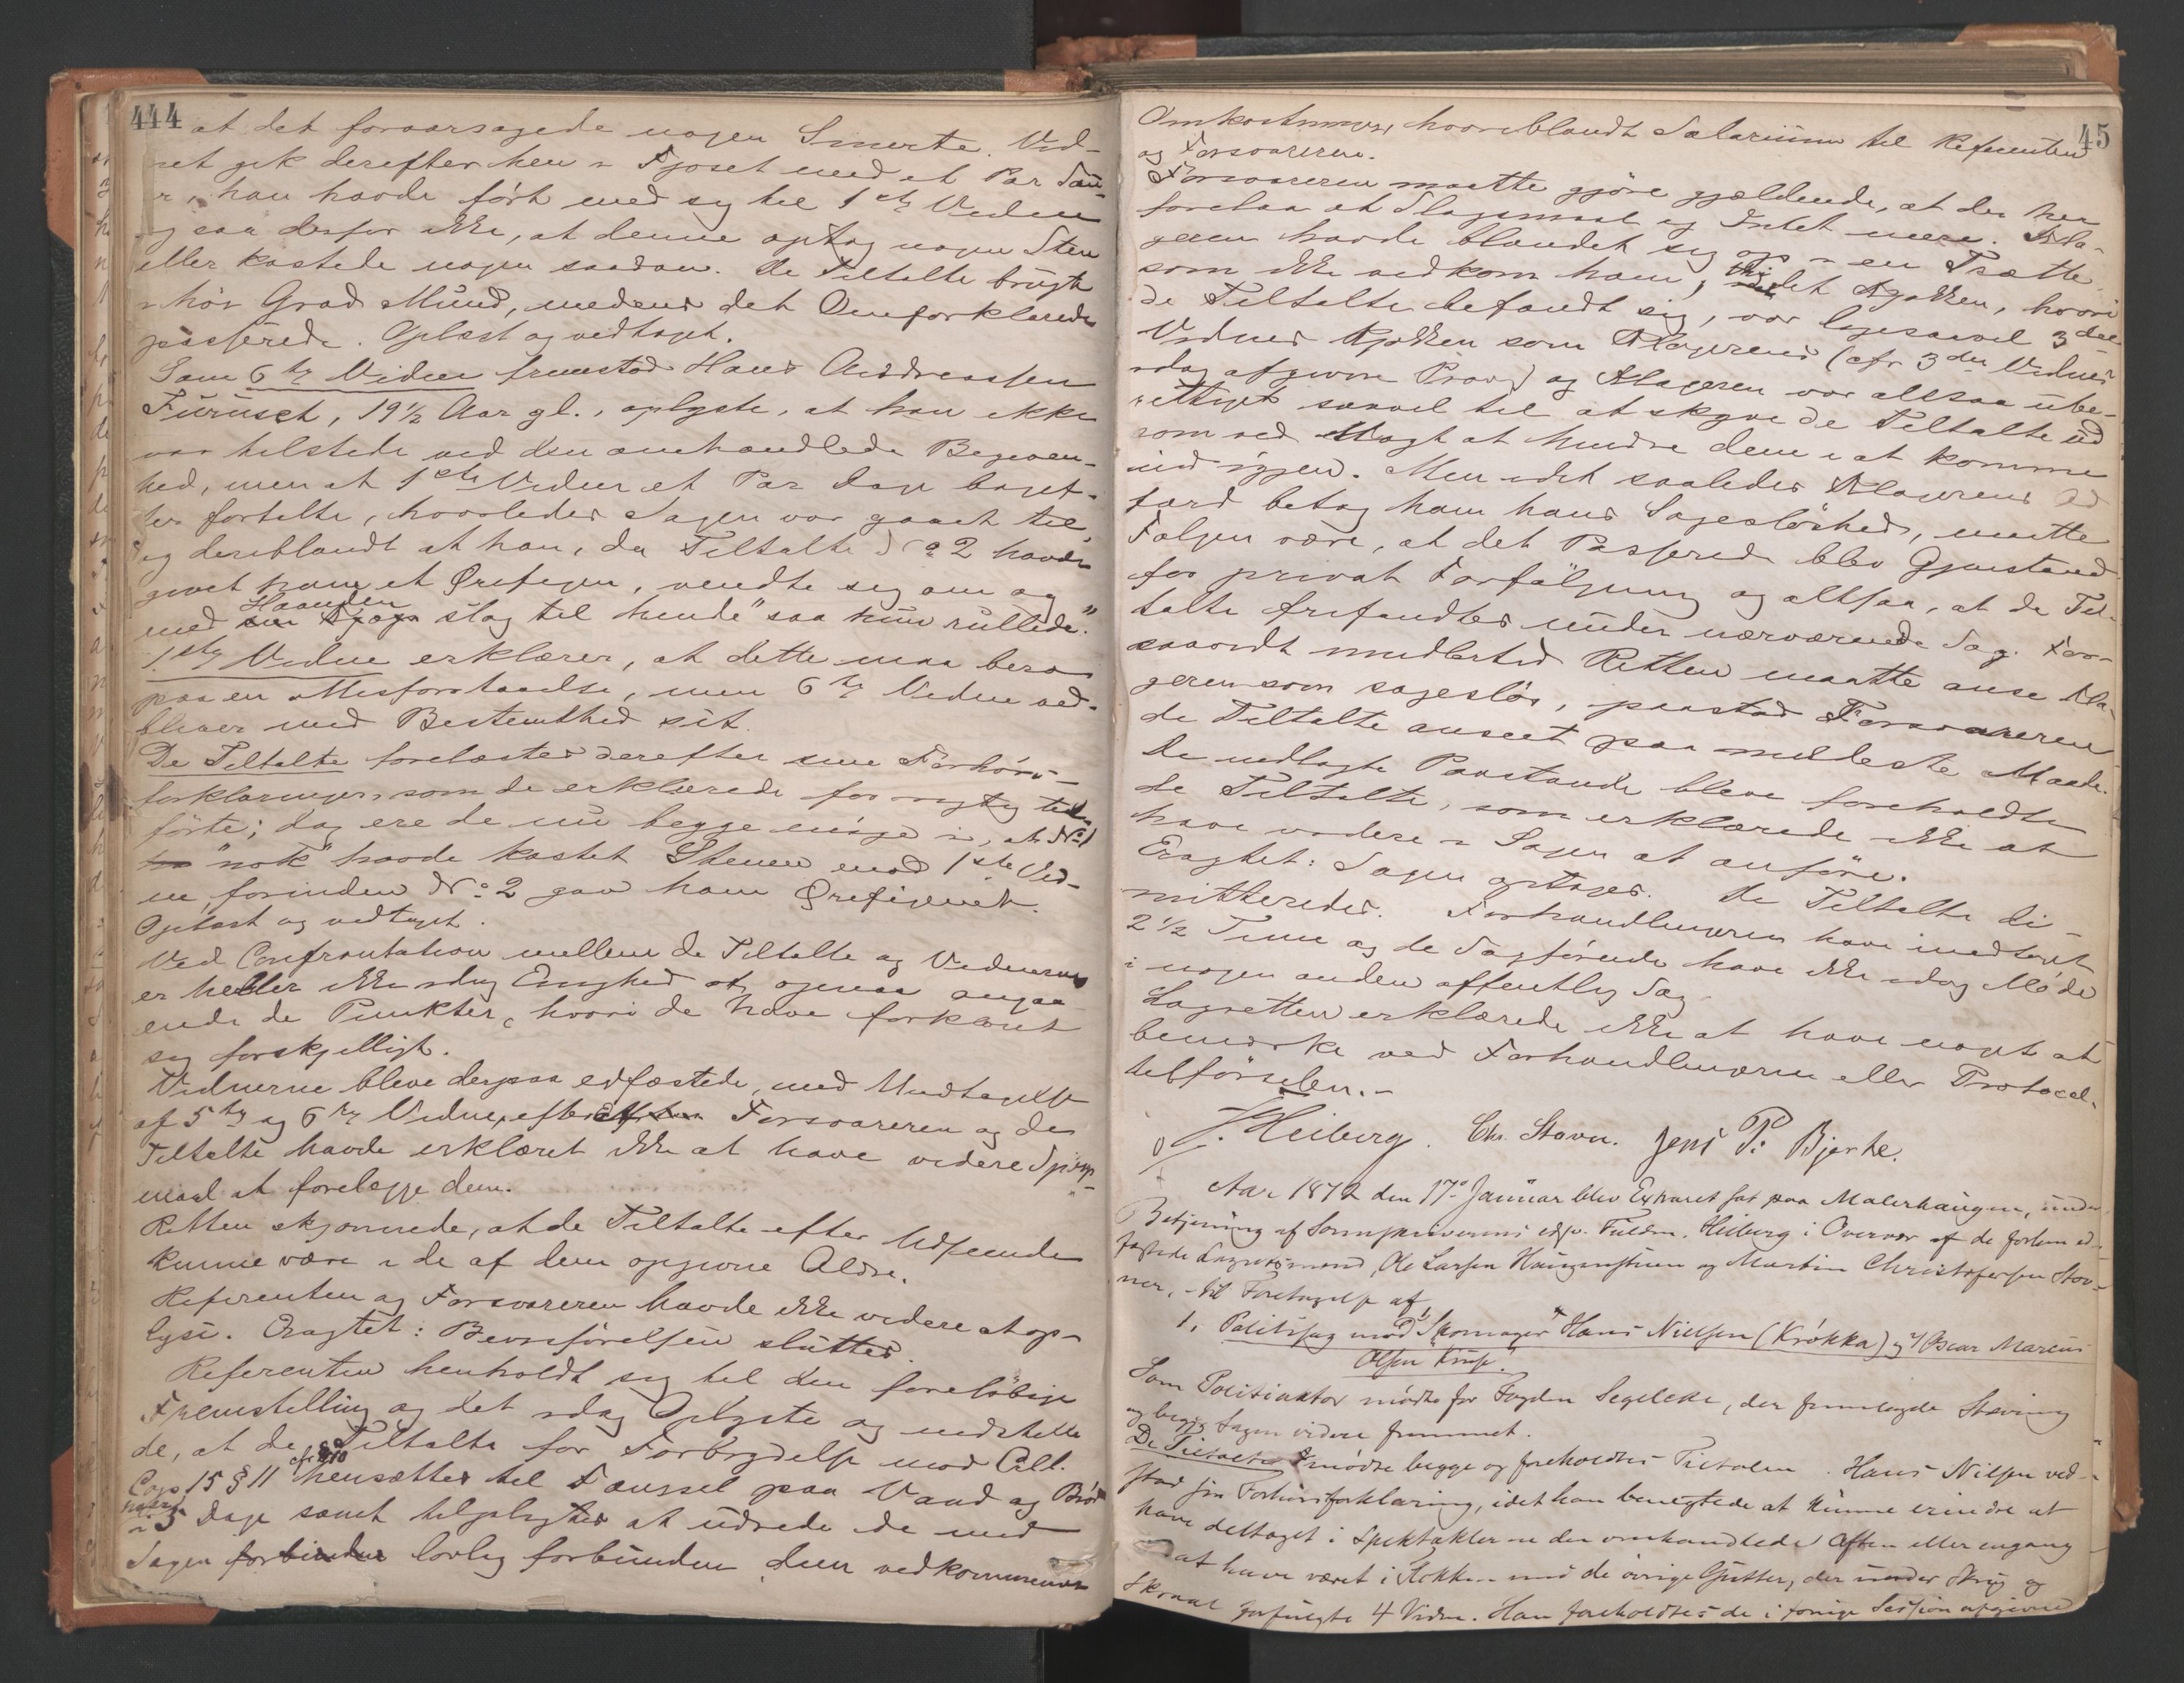 444
at det foraarsagede nogen Smerte. Vid-
net gik derefter hen i Fjøset med et Par Tau-
r, han havde ført med sig til 1ste Vidne
og saa derfor ikke, at denne optog nogen Sten
eller kastede nogen saadan. De Tiltalte brugte
i høi Grad Mund, medens det Omforklarede
passerede. Oplæst og vedtaget.
Som 6te Vidne fremstod Hans Andreassen
Furuset, 19 1/2 Aar gl., oplyste, at han ikke
var tilstede ved den omhandlede Begiven-
hed, men at 1ste Vidne et Par Dage baget-
ter fortalte, hvorledes Sagen var gaaet til,
og deriblandt at han, da Tiltalte No 2 havde
givet ham et Ørefigen, vendte sig om og
med Haanden slog til hende "saa hun rullede".
1ste Vidne erklærer, at dette maa bero
paa en Misforstaaelse, men 6te Vidne ved-
bliver med Bestemthed sit.
De Tiltalte forelæstes derefter sine Forhørs-
forklaringer, som de erklærede for rigtig til-
førte; dog ere de nu begge enige i, at No 1
"nok" havde kastet Stenen mod 1ste Vid-
ne, forinden No 2 gav ham Ørefigenet.
Oplæst og vedtaget.
Ved Confrontation mellem de Tiltalte og Vidnerne
er heller ikke idag Enighed at opnaa angaa-
ende de Punkter, hvori de have forklaret
sig forskjelligt.
Vidnerne bleve derpaa edfæstede, med Undtagelse
af 5te og 6te Vidne, efterat Forsvareren og de
Tiltalte havde erklæret ikke at have videre Spørgs-
maal at forelægge dem.
Retten skjønnede, at de Tiltalte efter Udseende
kunne være i de af dem opgivne Aldre.
Referenten og Forsvareren havde ikke videre at op-
lyse. Eragtet: Bevisførelsen sluttes.
Referenten henholdt sig til den foreløbige
Fremstilling og det idag Oplyste og indstille-
de, at de Tiltalte for Forbrydelse mod Crl.
Cap 15 § 11 cfr § 10 hensættes til Fængsel paa Vand og Brød
i 5 Dage samt tilpligtes at udrede de med
Sagen forbinder lovlig forbundne, dem vedkommende
45
Omkostninger, hvoriblandt Salarium til Referenten
og Forsvareren.
Forsvareren maatte gjøre gjældende, at der her
forelaa et Slagsmaal og Intet mere. Kla-
geren havde blandet sig op i en Trætte
som ikke vedkom ham, thi det Kjøkken, hvori
de Tiltalte befandt sig, var ligesaavel 3die
Vidnes Kjøkken som Klagerens (cfr 3die Vidnes
idag afgivne Prov) og Klageren var altsaa ube-
rettiget saavel til at skyve de Tiltalte ud
som ved Magt at hindre dem i at komme
ind igjen. Men idet saaledes Klagerens Ad-
færd betog ham hans Sagesløshed, maatte
Følgen være, at det Passerede blev Gjenstand
for privat Forfølgning og altsaa, at de Til-
talte frifandtes under nærværende Sag. For-
saavidt imidlertid Retten maatte anse Kla-
geren som sagesløs, paastod Forsvareren
de Tiltalte anseet paa mildeste Maade.
De nedlagte Paastande bleve foreholdte
de Tiltalte, som erklærede ikke at
have videre i Sagen at anføre.
Eragtet: Sagen optages. De Tiltalte di-
mitteredes. Forhandlingerne have medtaget
2 1/2 Time og de Sagførende have ikke idag Møde
i nogen anden offentlig Sag.
Lagretten erklærede ikke at have noget at
bemærke ved Forhandlingerne eller Protocol-
tilførselen.-
J. Heiberg. Chr. Stovn. Jens P: Bjerke.
Aar 1872 den 17de Januar blev Extraret sat paa Malerhaugen, under
Betjening af Sorenskriverens edsv. Fuldm. Heiberg i Overvær af de forhen ed-
fæstede Lagrettesmænd Ole Larsen Haugenstuen og Martin Christofersen Stov-
ner, - til Foretagelse af
1. Politisag mod 1, Skomager Hans Nielsen (Krøkka) og 2, Oscar Marcus
Olsen
Som Politiaktor mødte for Fogden Segelcke, der fremlagde Stevning
og begj. Sagen videre fremmet.
De Tiltalte mødte begge og foreholdtes Tiltalen. Hans Nielsen ved-
stod sin Forhørsforklaring, idet han benegtede at kunne erindre at
have deltaget i Spektaklerne den omhandlede Aften eller engang
at have været i Flokken med de øvrige Gutter, der under Skrig og
Skraal forfulgte 4 Vidne. Han foreholdtes de i forrige Session afgivne